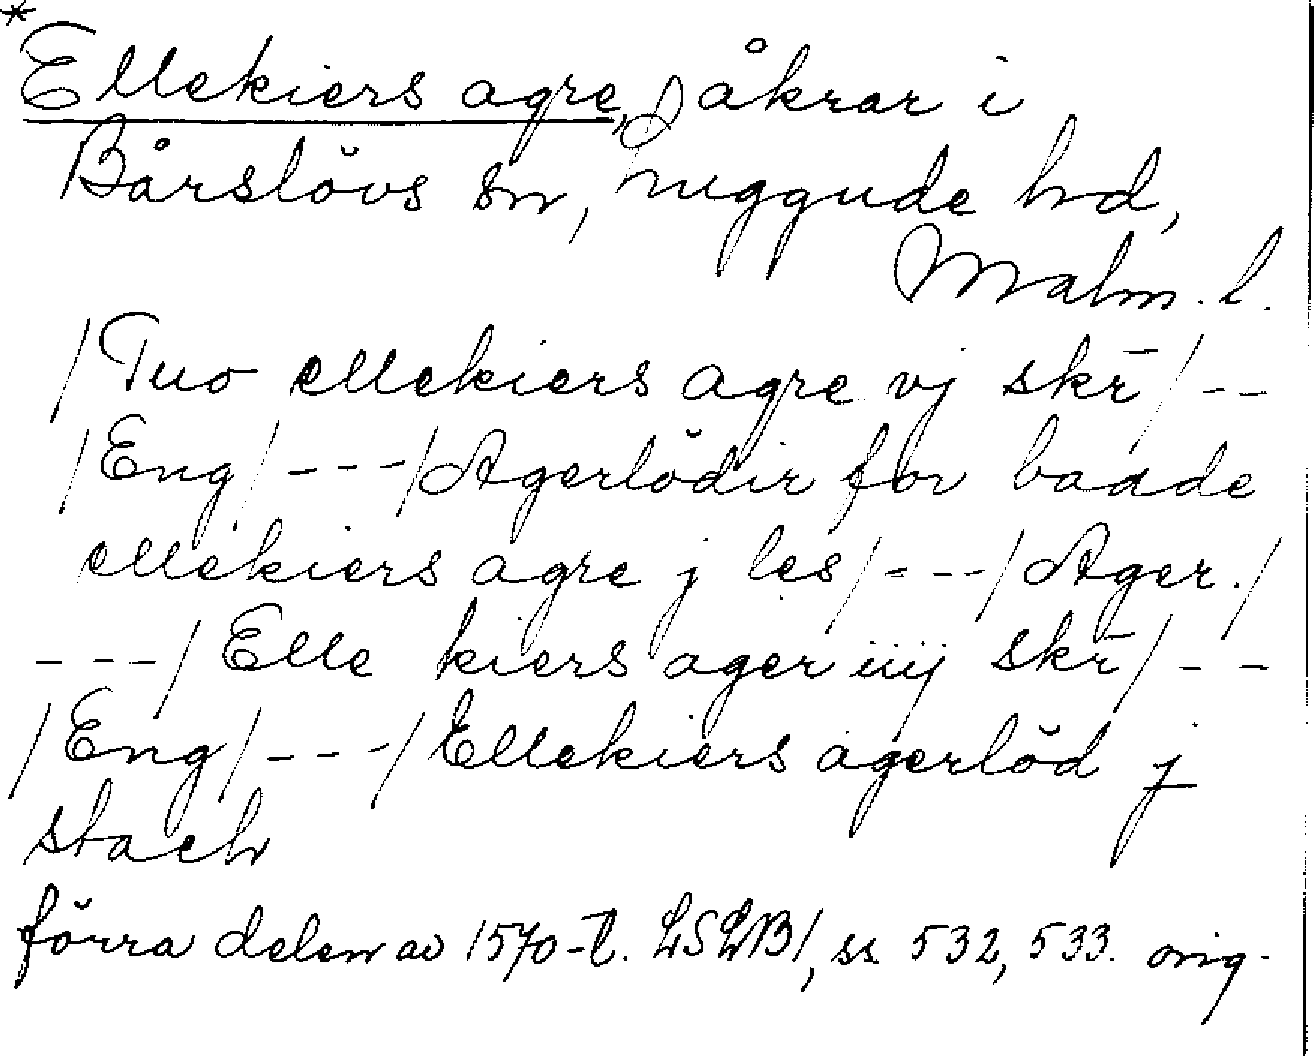 *
Ellekiers agre, åkrar i
Bårslövs sn, Luggude hd,
Malm. l.
/Tuo ellekiers agre vj skr̄/--
/Eng/---/Agerlödir for baade
ellekiers agre j les/---/Ager./
---/Elle kiers ager iiij skr̄/--
/Eng/---/Ellekiers agerlöd j
stach
förra delen av 1570-t. LSLB1, ss. 532, 533. orig.